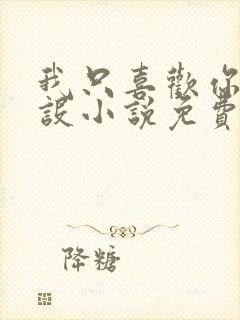 我只喜歡你
設小說免費
降糖